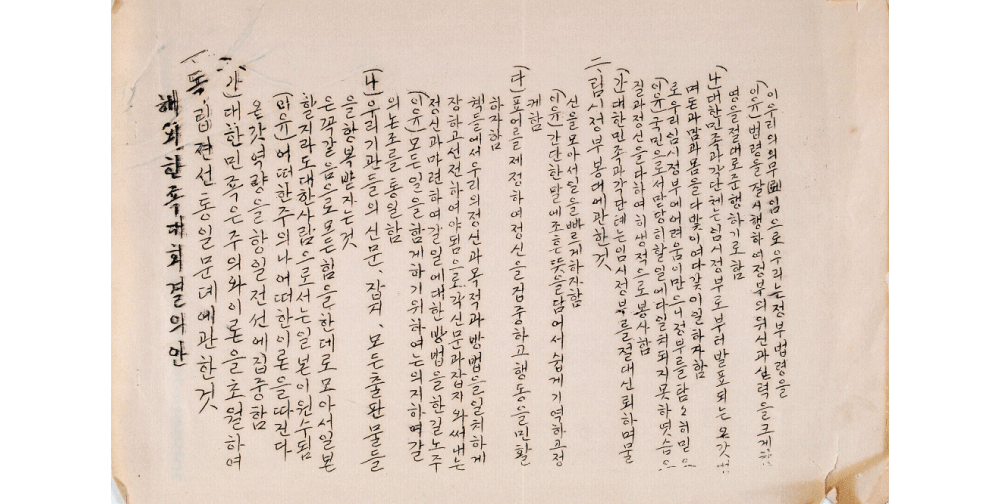 해외한족대회결의안
독립젼선통일문뎨에관한것
가)대한민족은주의와이론을초월하여
온갓역량을항일전선에집중함
(이유)어떠한주의나어떠한이론을따진다
할지라도대한사람으로서는일본이원수됨
은꼭갈음으로모든힘을한데로모아서일본
을항복받자는것
나)우리기관들의신문、잡지、모든출판물들
의논조를통일함
(이유)모든일을함게하기위하여는의지하며갈
정신과마련하여갈일에대한방법을한길노주
장하고선전하여야됨으로각신문과잡지와써내는
책들에서우리의정신과목적과방법을일치하게
하자함
다)표어를제정하여정신을집중하고행동을민활
케함
이유)간단한말에조흔뜻을담어서쉽게기억하고정
신을모아서일을빠르게하자함
二、림시정부봉대에관한것
가)대한민족과각단톄는림시정부를절대신뢰하며물
질과정신을다하여히생적으로봉사함
(이유)국민으로서맛당히할일에다일치되지못하엿슴으
로우리림시정부에어려움이만으니정부를탐탐히믿으
며돈과맘과몸을다밫이여다갗이일하자함
나)대한민족과각단체는림시정부로부터발표되는온갓
명을절대로준행하기로함
이유)법령을잘시행하여정부의위신과실력을크게함
이우리의의무임으로우리는정부법령을